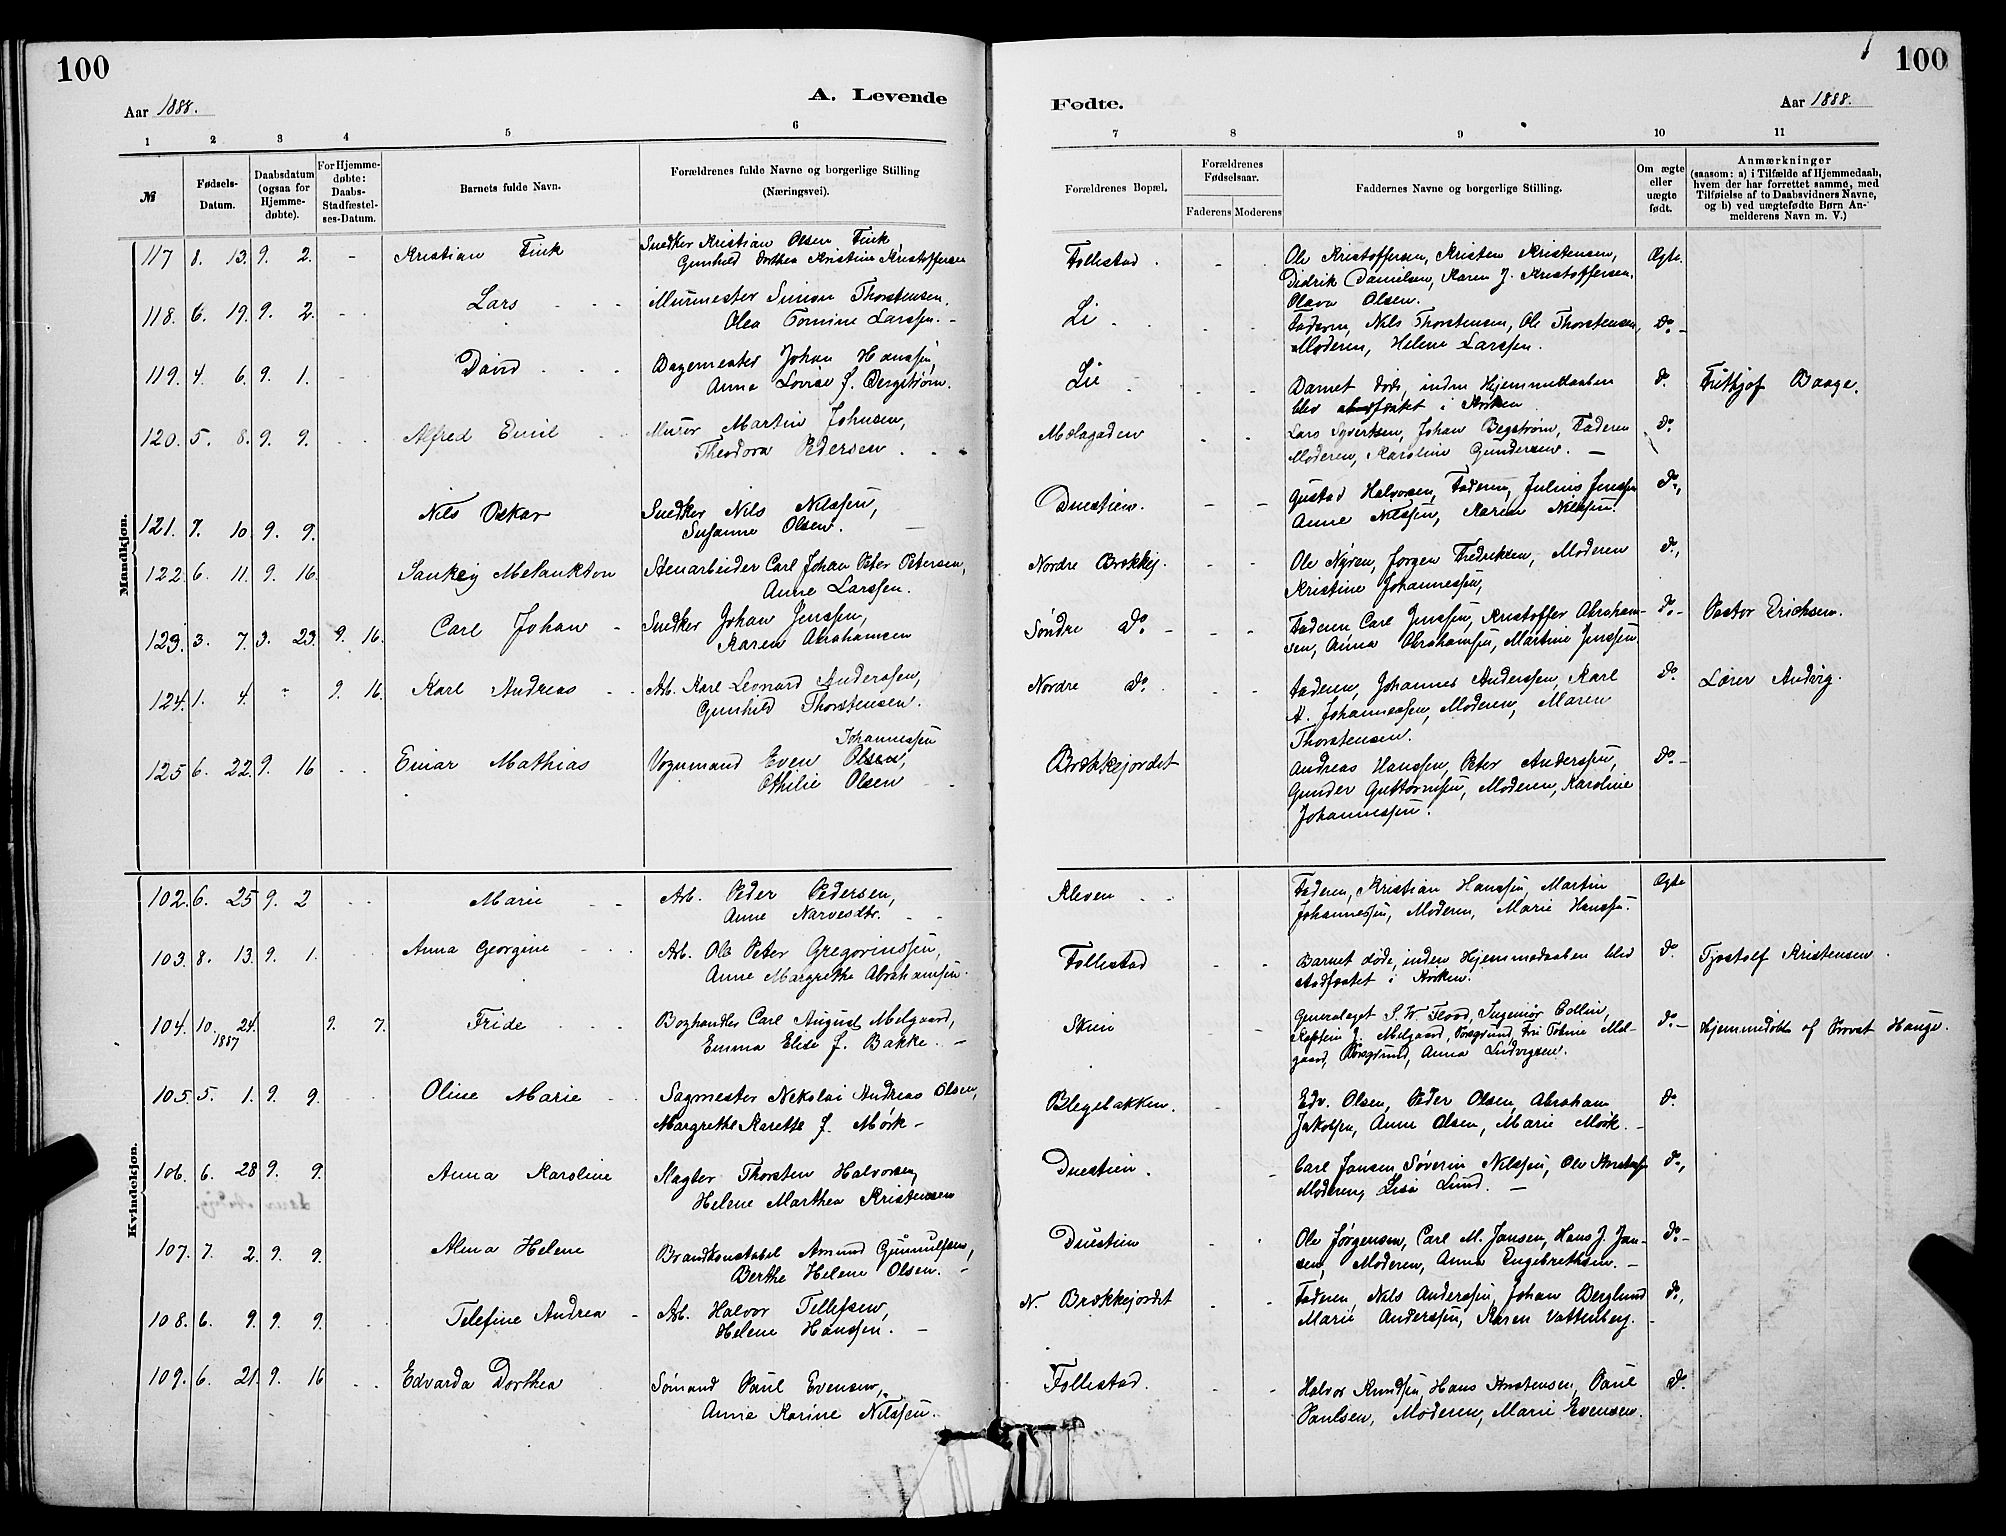 100
A. Levende
Aar 1888.
1 2 3 4 5 6
№
Fødsels-
Datum.
Daabsdatum
(ogsaa for
Hjemme-
døbte).
For Hjemme-
døbte:
Daabs-
Stadfæstel-
ses-Datum.
Barnets fulde Navn.
Forældrenes fulde Navne og borgerlige Stilling
(Næringsvei).
Mandkjøn.
117 8. 13. 9. 2. - Kristian Fink Snedker Kristian Olsen Fink
Gunhild Dorthea Kristine Kristoffersen
118. 6. 19. 9. 2. Lars Murmester Simon Thorstensen.
Olea Tomine Larssen.
119. 4. 6. 9. 1. David Bagemester Johan Hanssen,
Anna Lovise f. Bergstrøm.
120. 5. 8. 9. 9. Alfred Emil Murer Martin Johnsen,
Theodora Pedersen
121. 7. 10. 9. 9. Nils Oskar Snedker Nils Nilssen,
Susanne Olsen.
122. 6. 11. 9. 16. Sankey Melankton Stenarbeider Carl Johan Peter Petersen,
Anne Larssen.
123. 3. 7. 3. 23. 9. 16. Carl Johan Snedker Johan Jenssen,
Karen Abrahamsen
124. 1. 4. " 9. 16. Karl Andreas Arb. Karl Leonard Anderssen,
Gunhild Thorstensen.
Johannessen
125 6. 22. 9. 16 Einar Mathias Vognmand Even Olsen,
Othilie Olsen
Kvindekjøn.
102. 6. 25 9. 2 Marie Arb. Peder Pedersen,
Anne Narvesdtr.
103. 8. 13. 9. 1. Anna Georgine Arb. Ole Peter Gregoriussen,
Anne Margrethe Abrahamsen.
104. 10. 24. 9. 7. Fride Boghandler Carl August Melgaard,
1887 Emma Elise f. Bakke.
105. 5. 1. 9. 9. Oline Marie Sagmester Nikolai Andreas Olsen,
Margrethe Karette f. Mørk
106. 6. 28 9. 9. Anna Karoline Slagter Thorsten Halvorsen,
Helene Marthea Kristensen
107. 7. 2. 9. 9. Alma Helene Brandkonstabel Amund Gunnulfsen,
Berthe Helene Olsen.
108. 6. 9. 9. 9. Telefine Andrea Arb. Halvor Tellefsen,
Helene Hanssen.
109. 6. 21. 9. 16 Edvarda Dorthea Sømand Paul Evensen,
Anne Karine Nilssen.
100
Fødte.
Aar 1888.
7 8 9 10 11
Forældrenes Bopæl.
Forældrenes
Fødselsaar.
Faderens Moderens
Faddernes Navne og borgerlige Stilling.
Om ægte
eller
uægte
født.
Anmærkninger
(saasom: a) i Tilfælde af Hjemmedaab,
hvem der har forrettet samme, med
Tilføielse af to Daabsvidners Navne,
og b) ved uægtefødte Børn An-
melderens Navn m. V.)
Follestad. Ole Kristoffersen, Kristen Kristensen, Ægte.
Didrik Danielsen, Karen J. Kristoffersen.
Olava Olsen.
Li Faderen, Nils Thorstensen, Ole Thorstensen, do
Moderen, Helene Larssen.
Lie Barnet døde, inden Hjemmedaaben do Frithjof Baage.
blev stadfæstet i Kirken
Mælagaden Lars Syvertsen, Johan Begstrøm, Faderen do
Moderen, Karoline Gundersen.
Duestien. Gustav Halvorsen, Faderen, Julius Jenssen do,
Anne Nilssen, Karen Nilssen.
Nordre Brækkej. Ole Nyren, Jørgen Fredriksen, Moderen do,
Kristine Johannessen,
Søndre do. Faderen Carl Jenssen, Kristoffer Abraham- do. Pastor Erichsen.
sen, Anna Abrahamsen, Martine Jenssen
Nordre do. Faderen, Johannes Anderssen, Karl do Lærer Andvig.
A. Johannessen, Moderen, Maren
Thorstensen.
Brækkejordet Andreas Hanssen, Peter Anderssen, do.
Gunder Guttormsen, Moderen, Karoline
Johannessen.
Kleven Faderen, Kristian Hanssen, Martin Ægte
Johannessen, Moderen, Marie Hanssen.
Follestad Barnet døde, inden Hjemmedaaben blev do. Tjostolf Kristensen
stadfæstet i Kirken.
Skien Generalagt S. W. Flood, Ingeniør Collin, do. Hjemmedøbt af Provst Hauge.
Kaptein J. Melgaard, Porsgrund, Fri Tomine Mel-
gaard, Porsgrund, Anna Ludvigsen.
Blegebakken. Edv. Olsen, Peder Olsen, Abraham do
Jakobsen, Anne Olsen, Marie Mørk.
Duestien. Carl Jansen, Søverin Nilssen, Ole Knudsen do,
Moderen, Lise Lund.
Duestien Ole Jørgensen, Carl M. Jansen, Hans J. Jan- do.
sen, Moderen, Anna Engebrethsen.
N. Brækkejordet Faderen Nils Anderssen, Johan Berglund do,
Marie Anderssen, Karen Vattenberg.
Follestad. Halvor Knudsen, Hans Knutsen, Paul do.
Paulsen, Moderen, Marie Evensen.